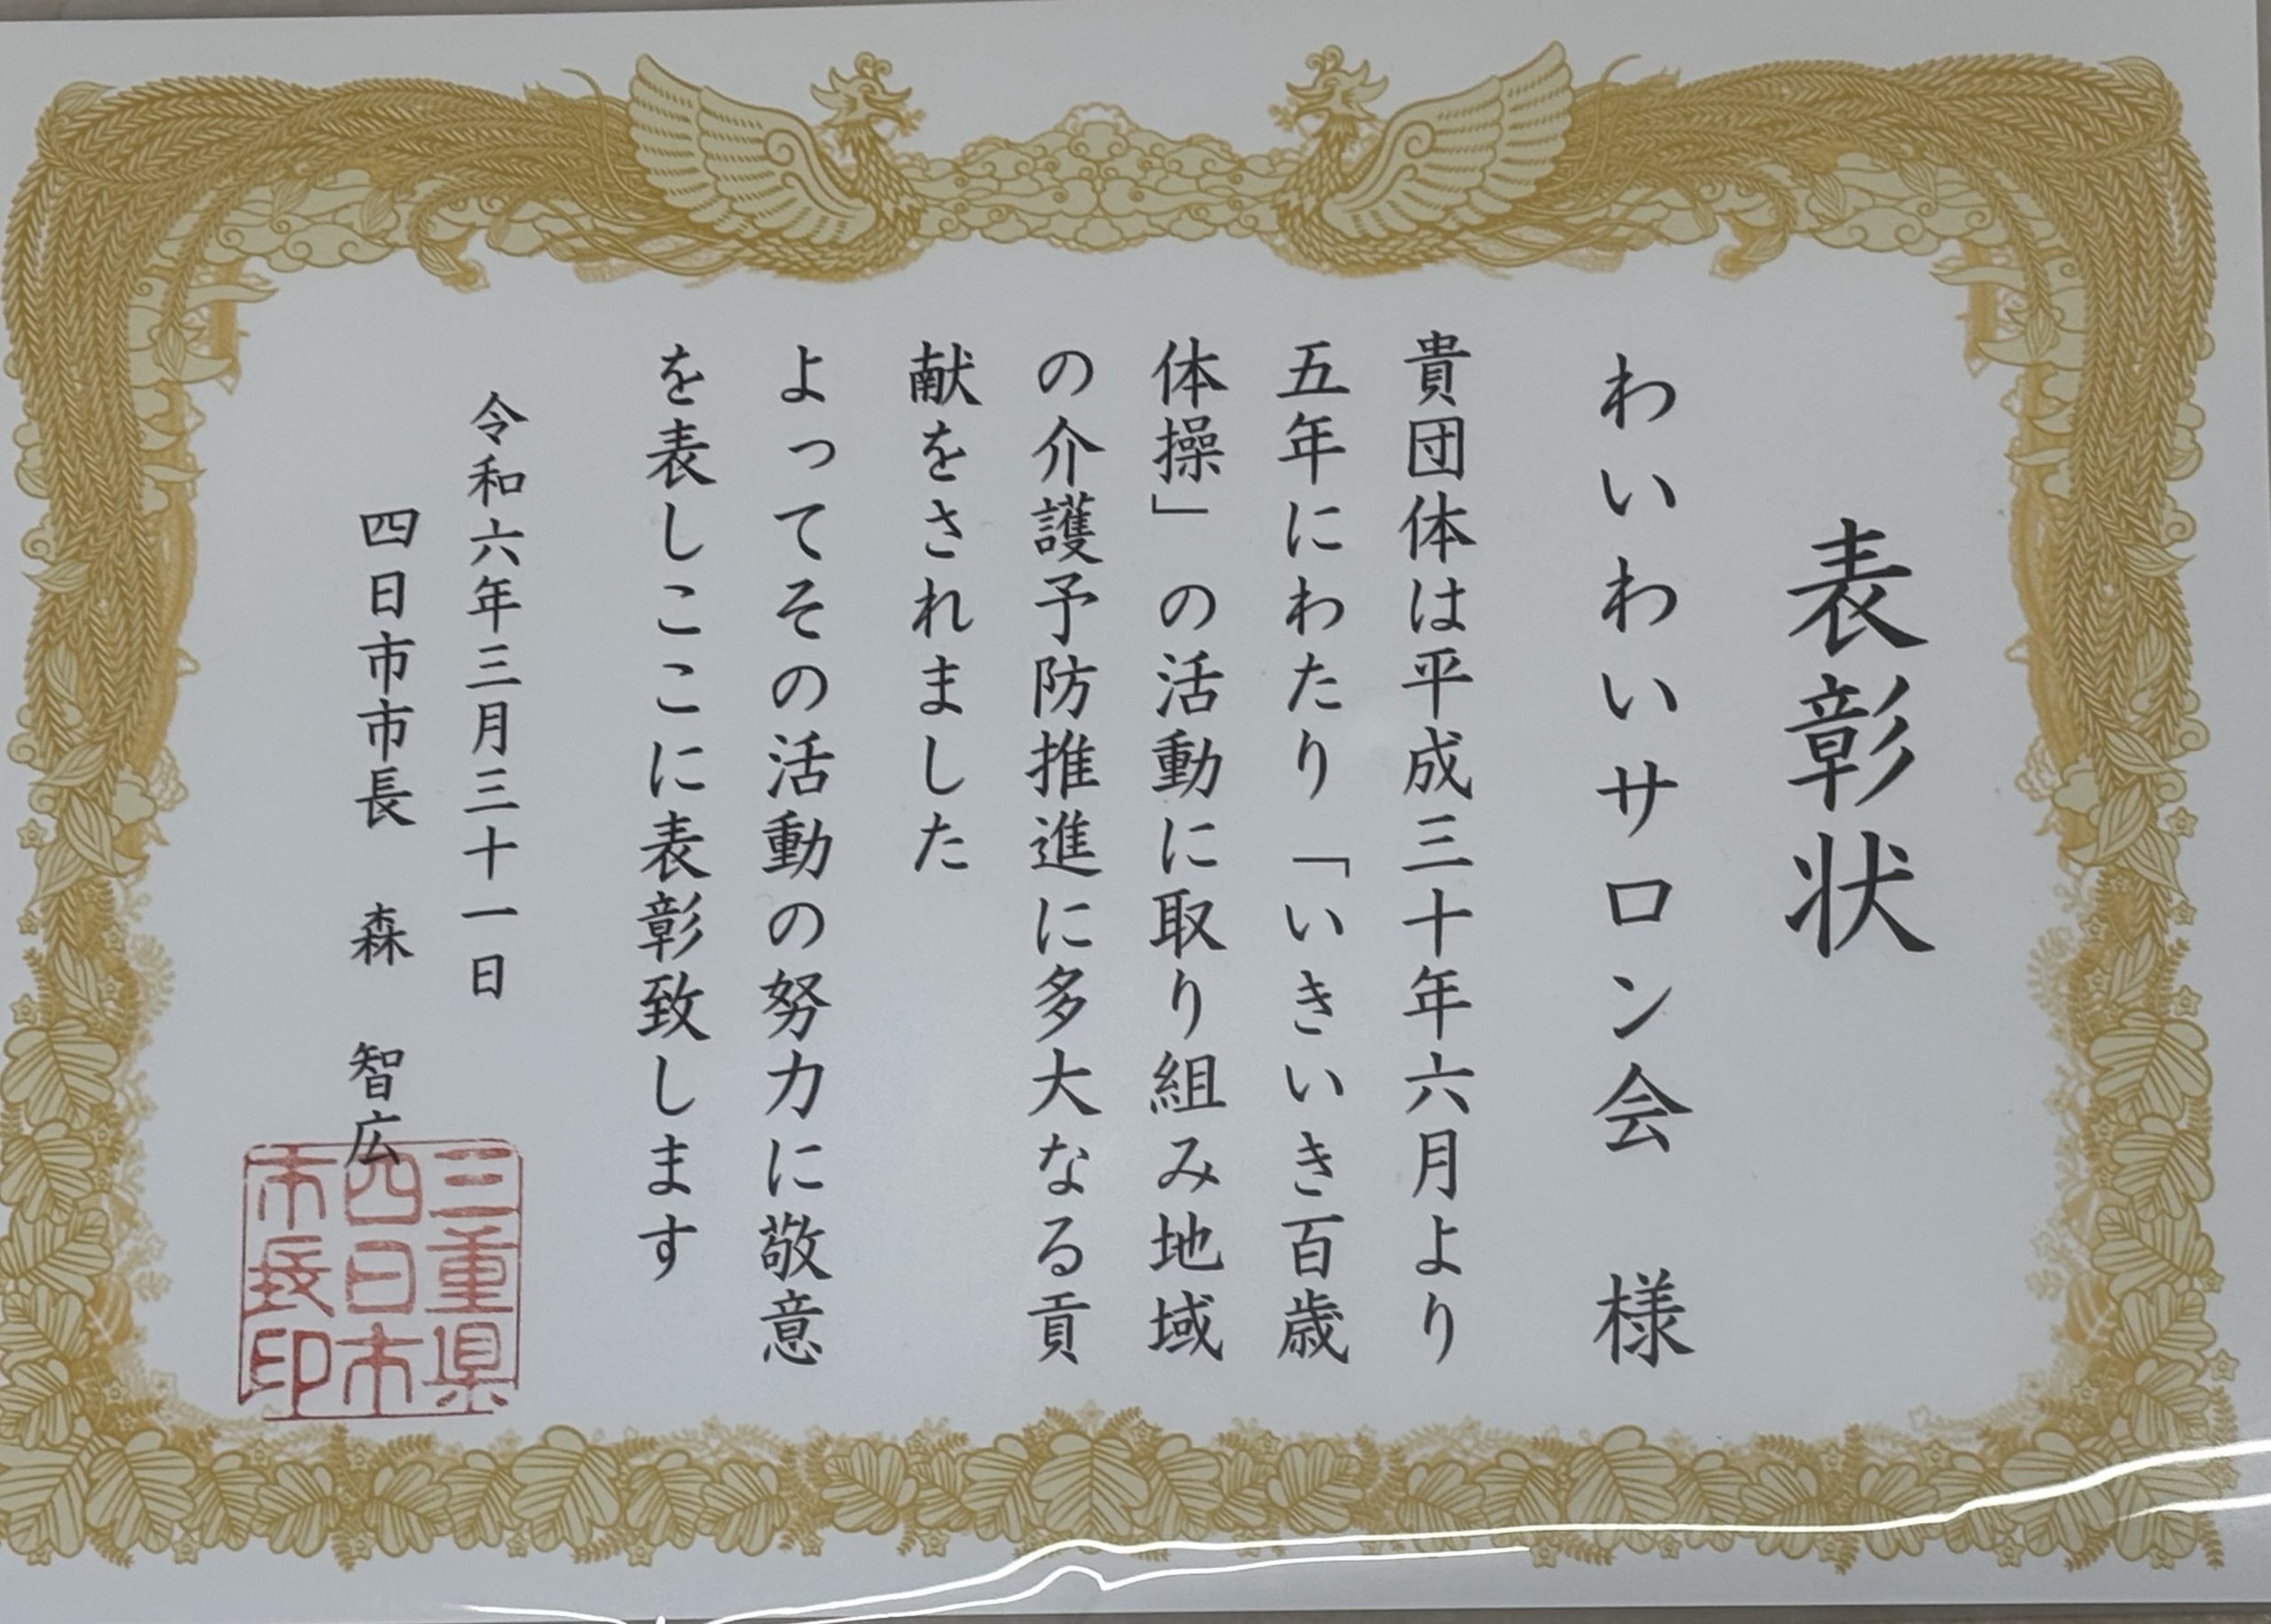 表彰状
わいわいサロン会　様
貴団体は平成三十年六月より
五年にわたり「いきいき百歳
体操」の活動に取り組み地域
の介護予防推進に多大なる貢
献をされました
よってその活動の努力に敬意
を表しここに表彰致します
令和六年三月三十一日
四日市市長　森　智広
三重県
四日市
市長印